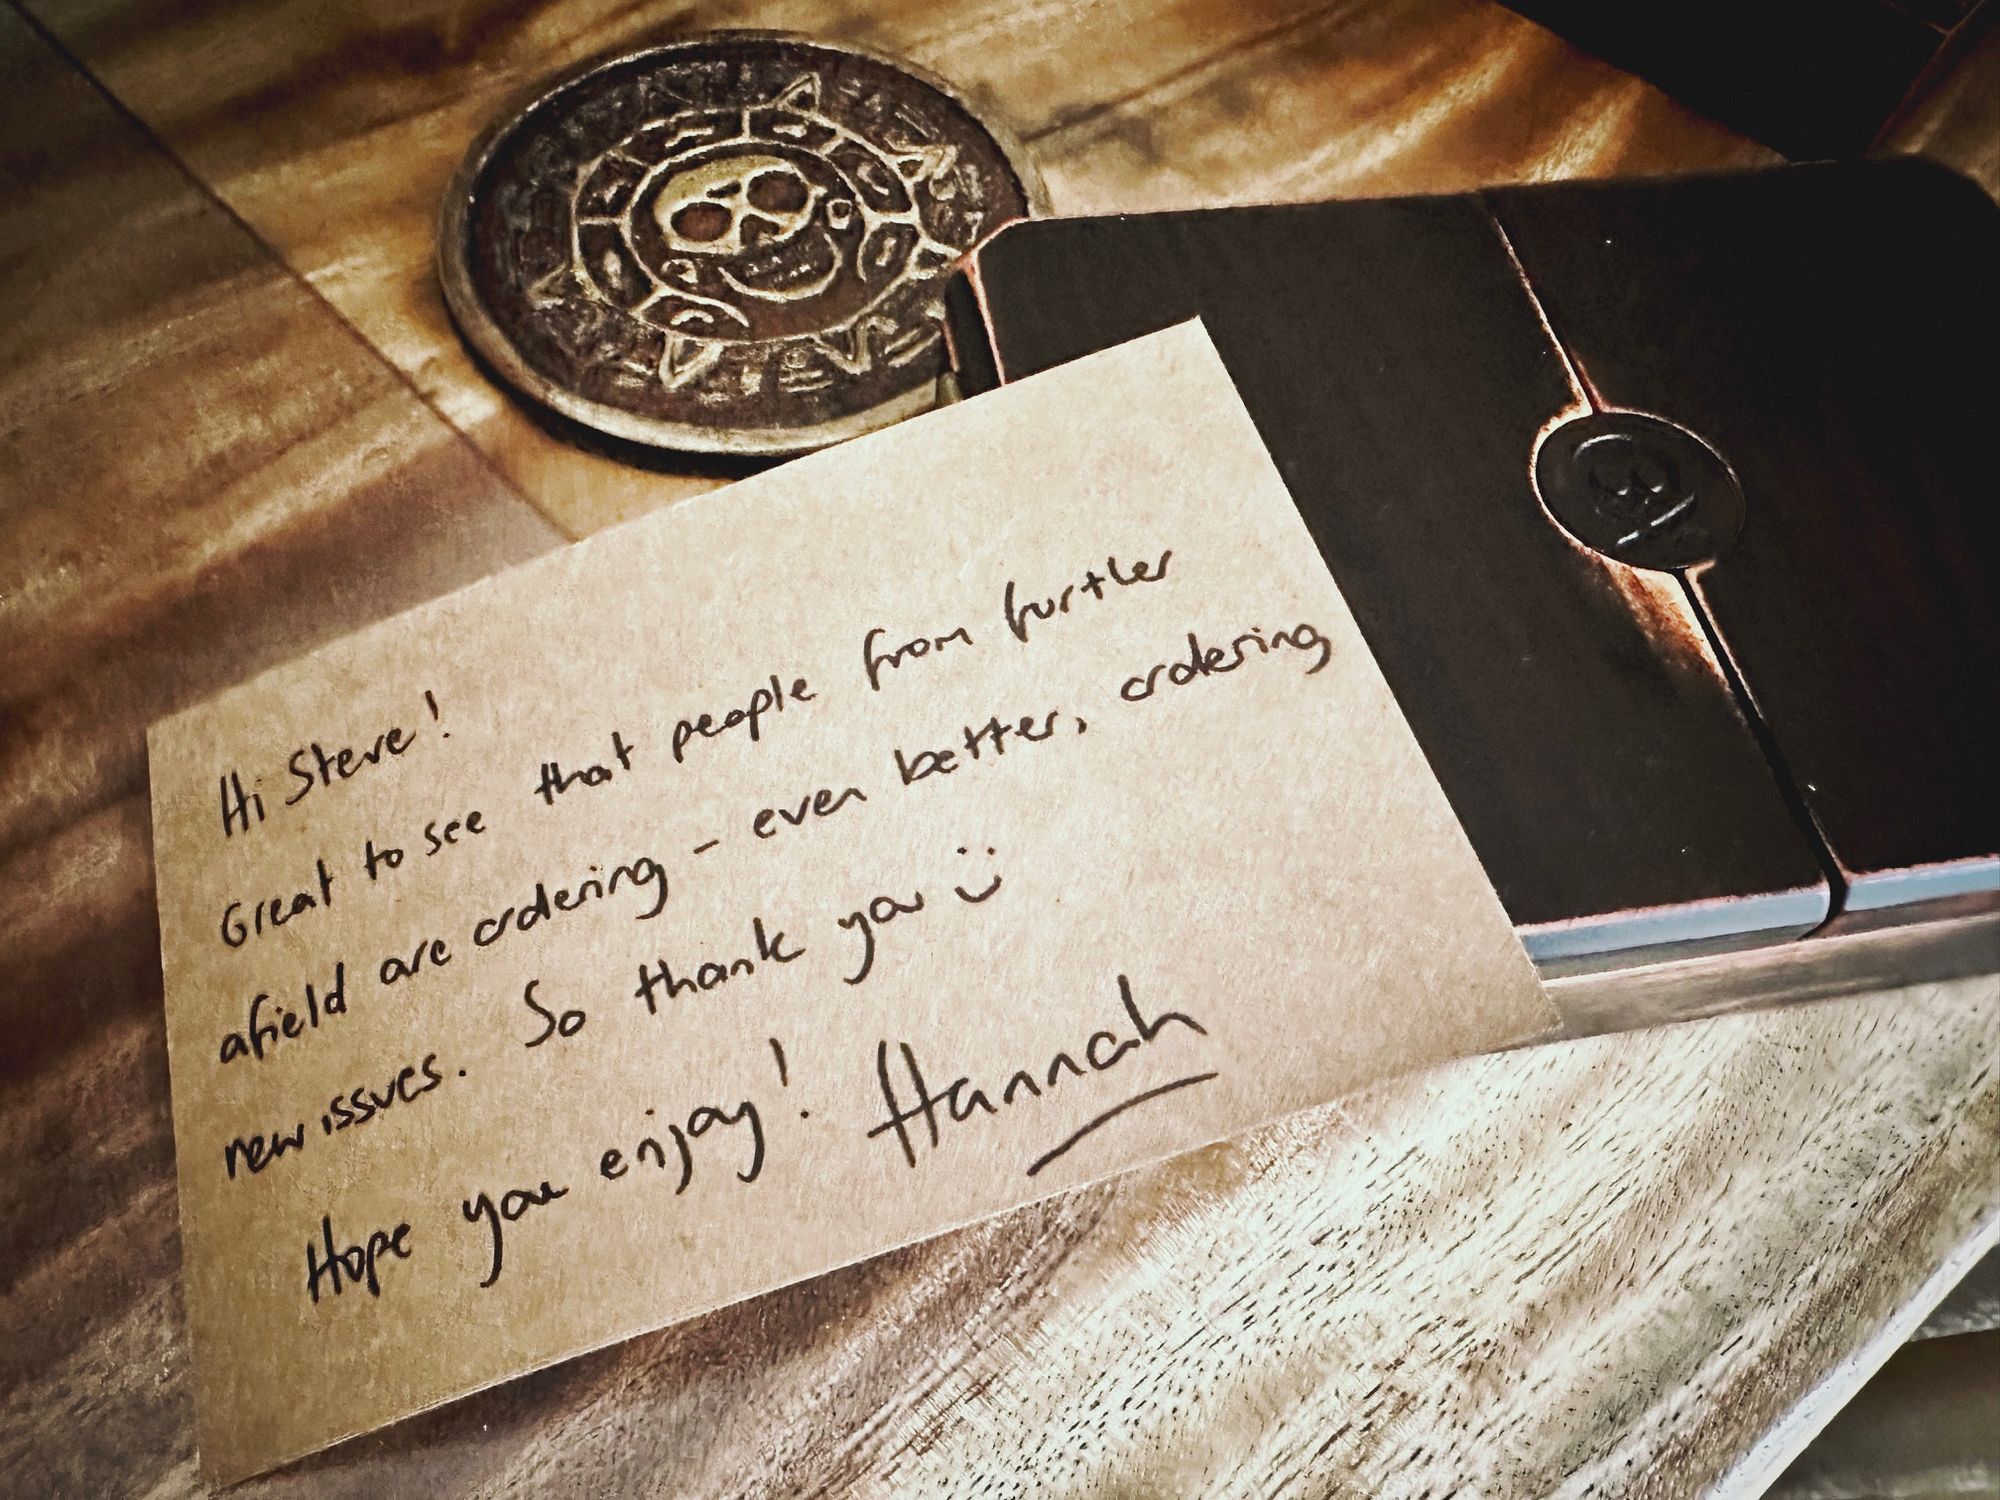 Hi Steve!
Great to see that people from further
afield are ordering – even better, ordering
new issues. So thank you :)
Hope you enjoy! Hannah